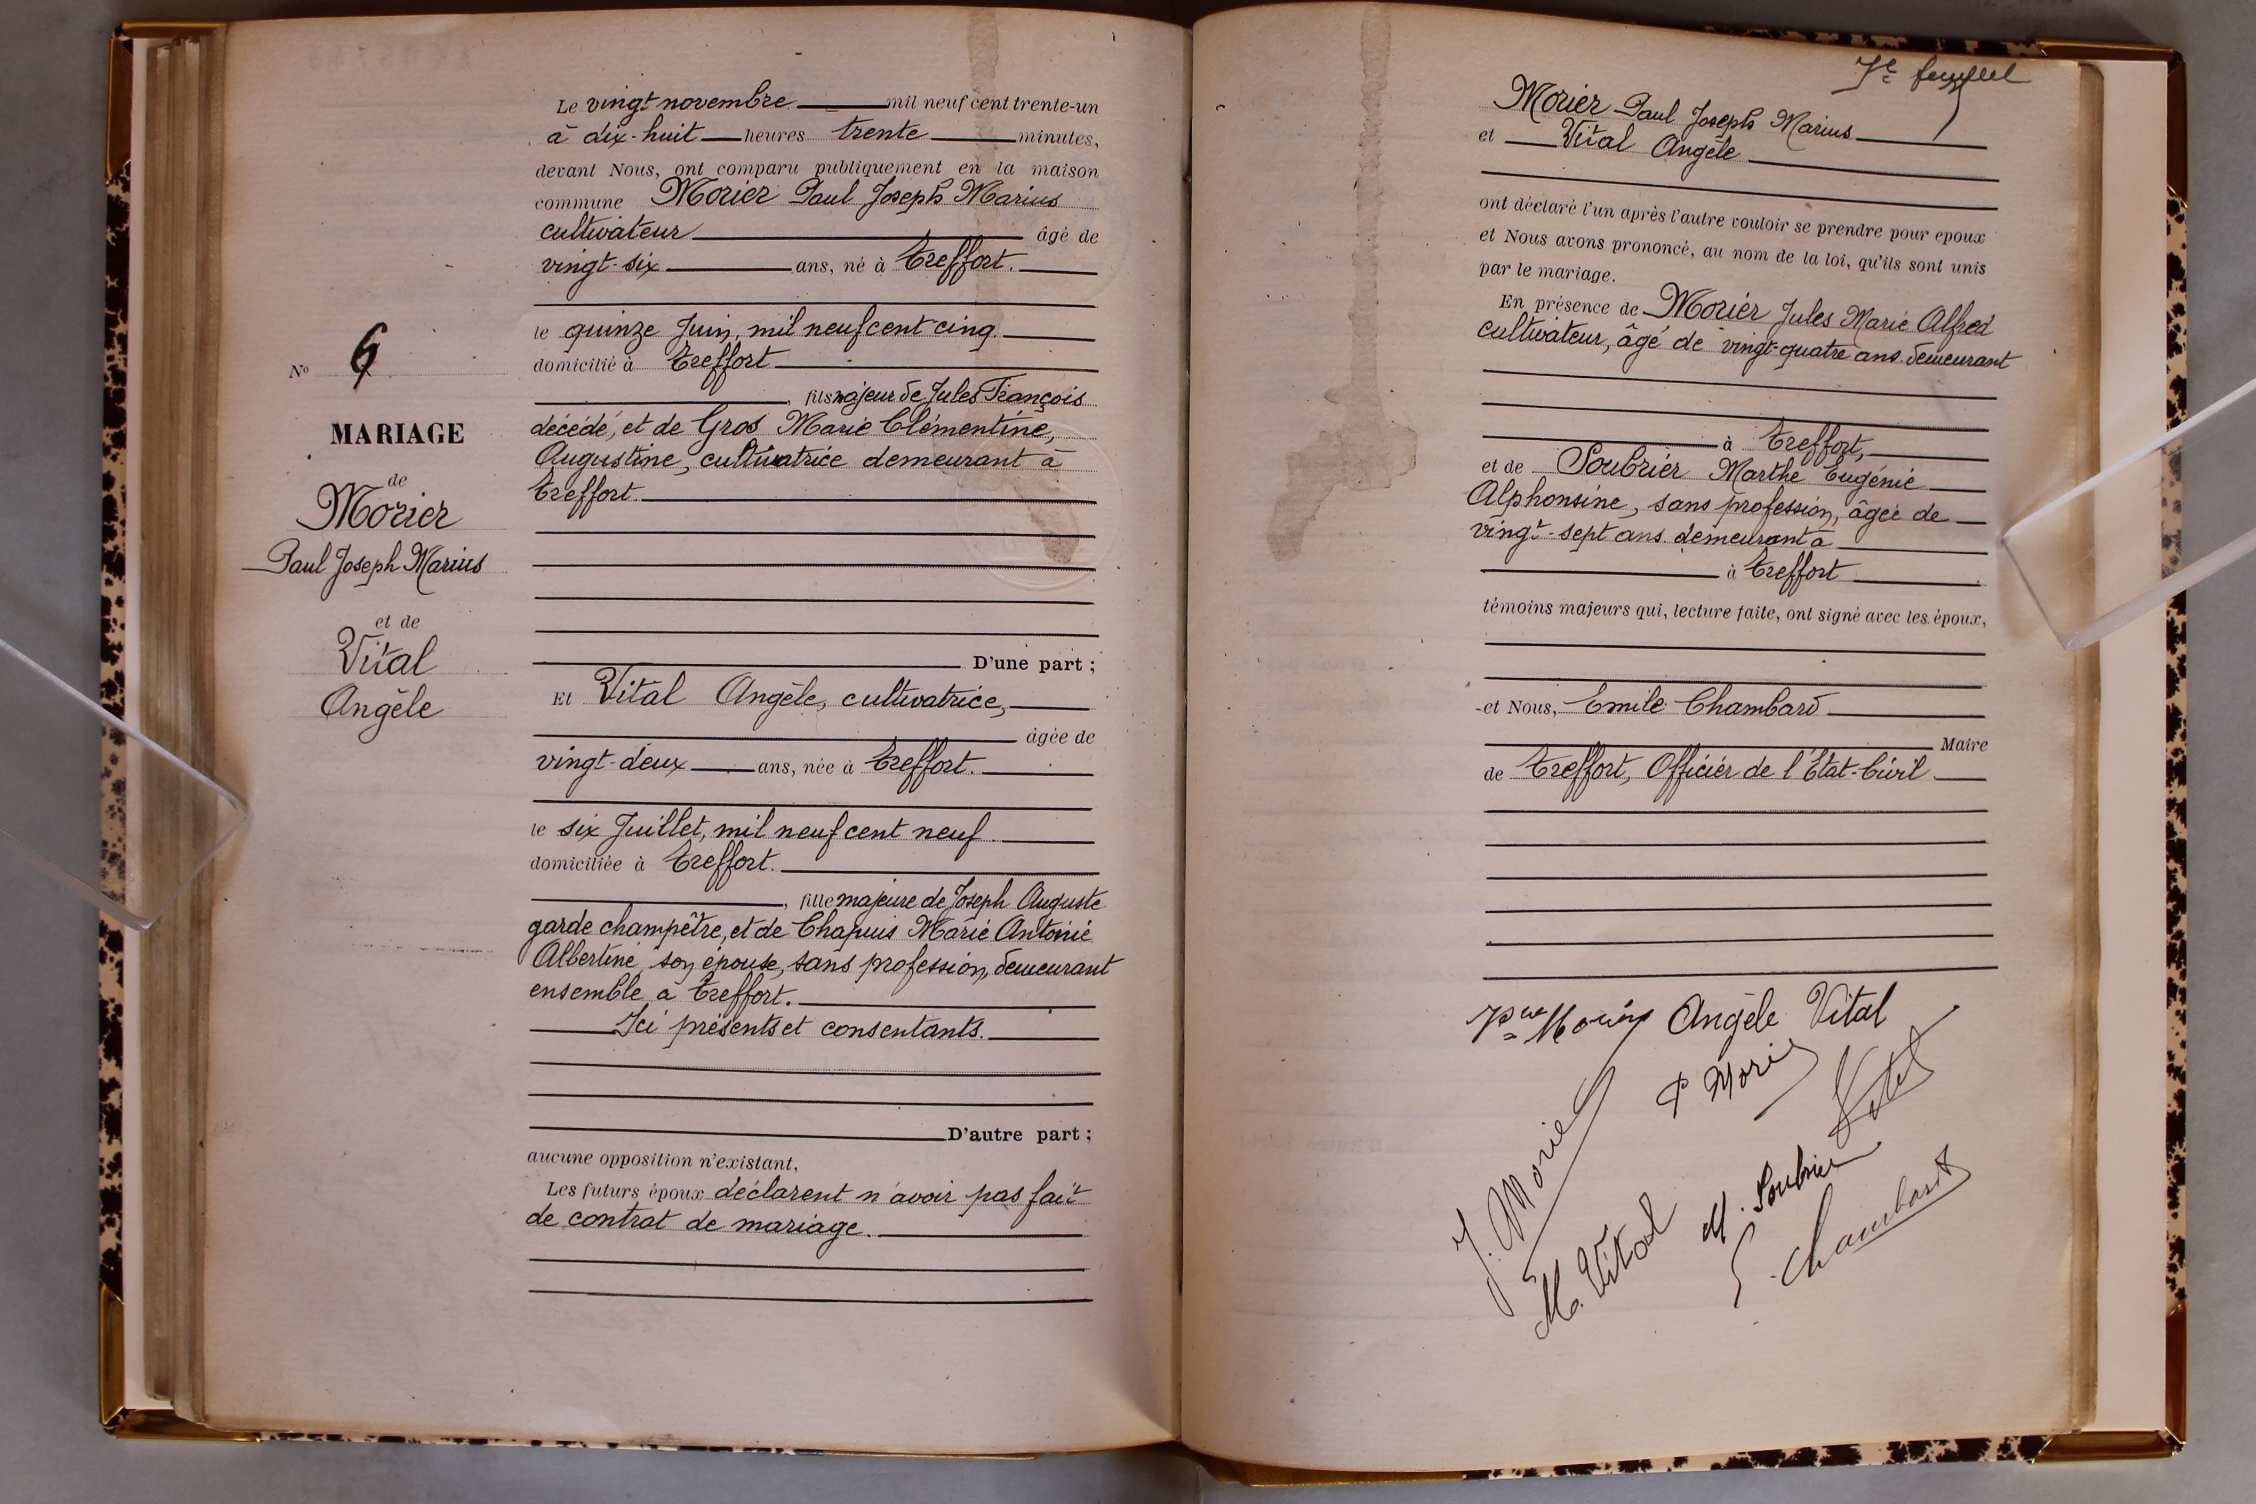 Le vingt novembre mil neuf cent trente-un
à dix-huit heures trente minutes,
devant Nous, ont comparu publiquement en la maison
commune Morier Paul Joseph Marius
cultivateur âgé de
vingt-six ans, né à Treffort.
le quinze Juin, mil neuf cent cinq.
domicilié à Treffort
, fils majeur de Jules François
décédé, et de Gros Marie Clémentine,
Augustine, cultivatrice demeurant à
Treffort.
D'une part ;
Et Vital Angèle, cultivatrice,
âgée de
vingt-deux ans, née à Treffort.
le six Juillet, mil neuf cent neuf
domiciliée à Treffort.
, fille majeure de Joseph Auguste
garde champêtre, et de Chapuis Marie Antonie
Albertine, son épouse, sans profession, demeurant
ensemble à Treffort.
Ici présents et consentants.
D'autre part ;
aucune opposition n'existant,
Les futurs époux déclarent n'avoir pas fait
de contrat de mariage.
No 6
MARIAGE
de
Morier
Paul Joseph Marius
et de
Vital
Angèle
7e
Morier Paul Joseph Marius
et Vital Angèle
ont déclaré l'un après l'autre vouloir se prendre pour époux
et Nous avons prononcé, au nom de la loi, qu'ils sont unis
par le mariage.
En présence de Morier Jules Marie Alfred
cultivateur, âgé de vingt-quatre ans demeurant
à Treffort,
et de Soubrier Marthe Eugénie
Alphonsine, sans profession, âgée de
vingt-sept ans demeurant à
à Treffort
témoins majeurs qui, lecture faite, ont signé avec les époux,
et Nous, Emile Chambard
Maire
de Treffort, Officier de l'État-Civil
Morier Angèle Vital
P Morier
J. Morier
Vital
M. Vital
M. Soubrier
E. Chambard